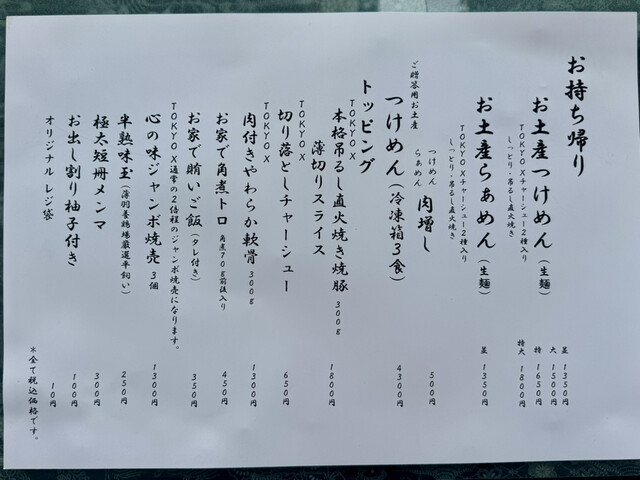 お持ち帰り
お土産つけめん（生麺）
並 1350円
大 1500円
特 1650円
特大 1800円
TOKYO Xチャーシュー2種入り
しっとり・吊るし直火焼き
お土産らぁめん（生麺） 並 1350円
TOKYO Xチャーシュー2種入り
しっとり・吊るし直火焼き
つけめん
らぁめん
肉増し 500円
ご贈答用お土産
つけめん（冷凍箱3食） 4300円
トッピング
TOKYO X
本格吊るし直火焼き焼豚 300g 1800円
薄切りスライス
TOKYO X
切り落としチャーシュー 650円
TOKYO X
肉付きやわらか軟骨 300g 1300円
お家で角煮トロ 角煮70g前後入り 450円
お家で賄いご飯（タレ付き） 350円
TOKYO X通常の2倍程のジャンボ焼売になります。
心の味ジャンボ焼売 3個 1300円
半熟味玉（薄羽養鶏場厳選平飼い） 250円
極太短冊メンマ 300円
お出し割り柚子付き 100円
オリジナルレジ袋 10円
*全て税込価格です。